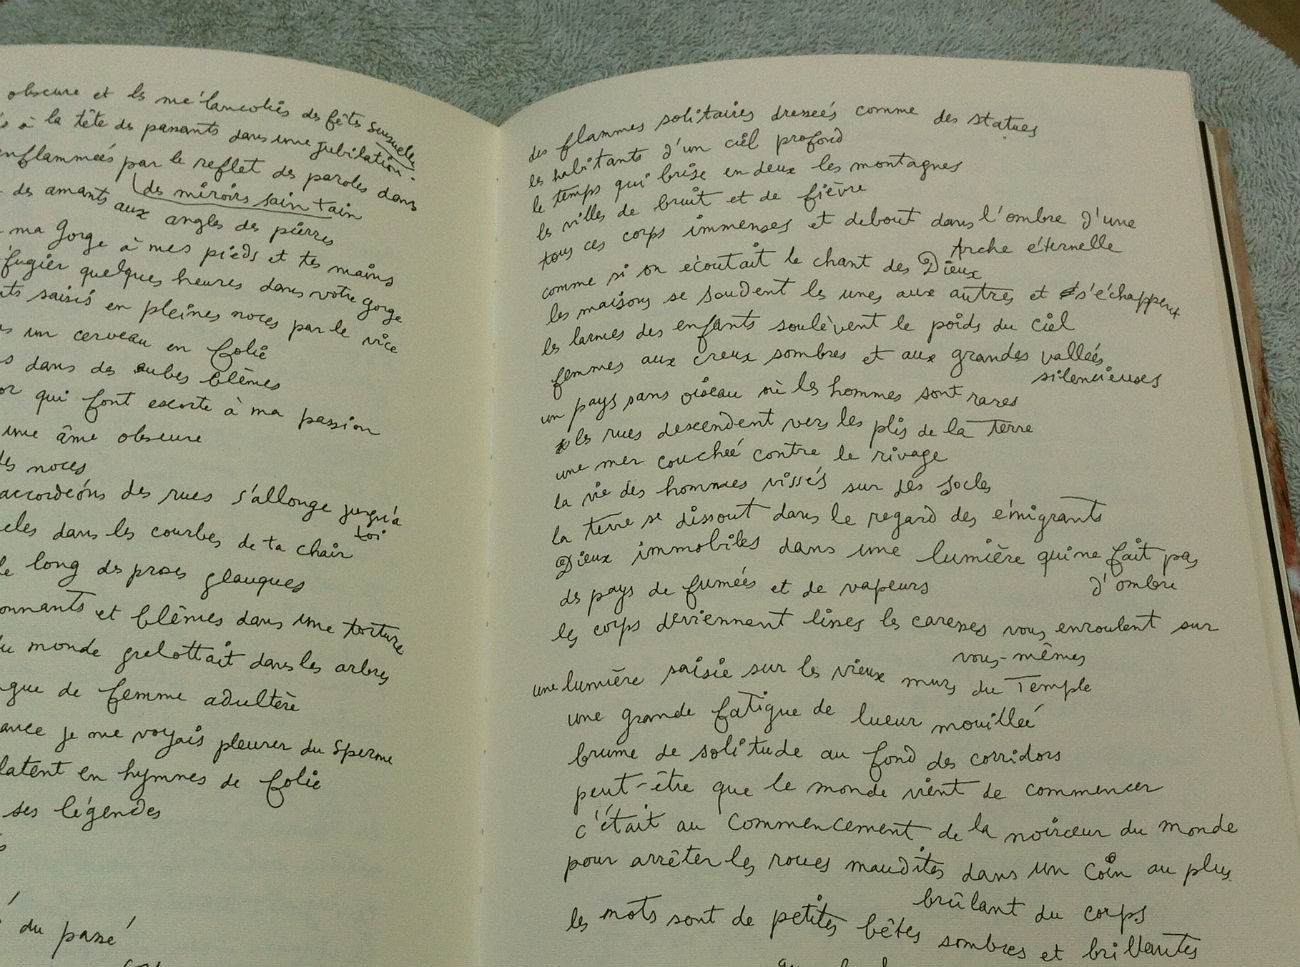 obscure et les mélancolies des fêtes sensuelles
à la tête des passants dans une jubilation
enflammées par le reflet des paroles dans
des amants des miroirs sain tain
aux angles des pierres
ma gorge à mes pieds et tes mains
quelques heures dans votre gorge
saisis en pleines noces par le vice
un cerveau en folie
dans des aubes blêmes
qui font escorte à ma passion
une âme obscure
des noces
accordéons des rues s'allonge jusqu'à
toi
dans les courbes de ta chair
le long des proses glauques
et blêmes dans une torture
du monde grelottait dans les arbres
de femme adultère
je me voyais pleurer du sperme
en hymnes de folie
ses légendes
du passé
des flammes solitaires dressées comme des statues
les habitants d'un ciel profond
le temps qui brise en deux les montagnes
les villes de bruit et de fièvre
tous ces corps immenses et debout dans l'ombre d'une
Arche éternelle
comme si on écoutait le chant des Dieux
les maisons se soudent les unes aux autres et s'échappent
les larmes des enfants soulèvent le poids du ciel
femmes aux creux sombres et aux grandes vallées
silencieuses
un pays sans oiseau où les hommes sont rares
les rues descendent vers les plis de la terre
une mer couchée contre le rivage
la vie des hommes vissés sur des socles
la terre se dissout dans le regard des émigrants
Dieux immobiles dans une lumière qui ne fait pas
d'ombre
des pays de fumées et de vapeurs
les corps deviennent lisses les caresses vous enroulent sur
vous-mêmes
une lumière saisie sur les vieux murs du Temple
une grande fatigue de lueur mouillée
brume de solitude au fond des corridors
peut-être que le monde vient de commencer
c'était au commencement de la noirceur du monde
pour arrêter les roues maudites dans un coin au plus
brûlant du corps
les mots sont de petites bêtes sombres et brillantes